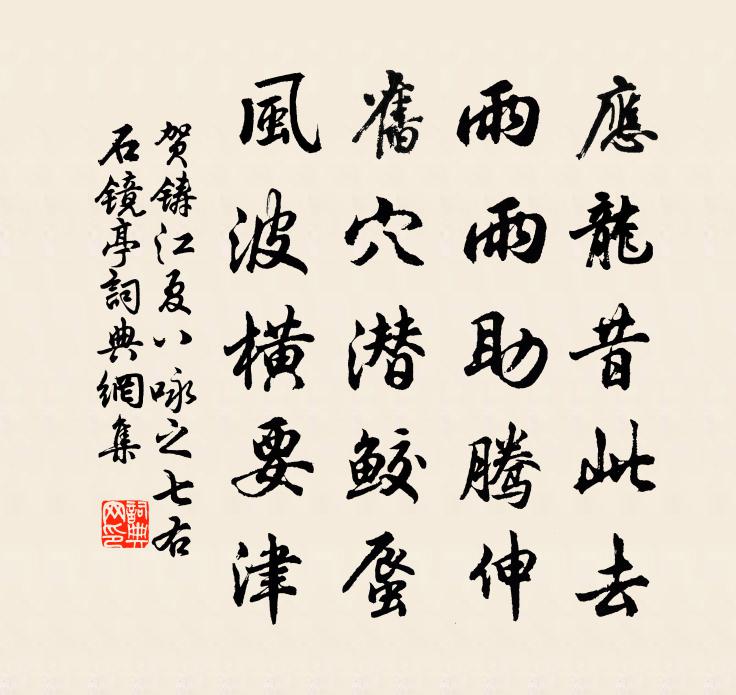 應龍昔此去
雨雨助騰伸
舊穴潜鮫蜃
風波橫要津
賀鑄江夏八咏之七右
石鏡亭詞典網集
詞典网印